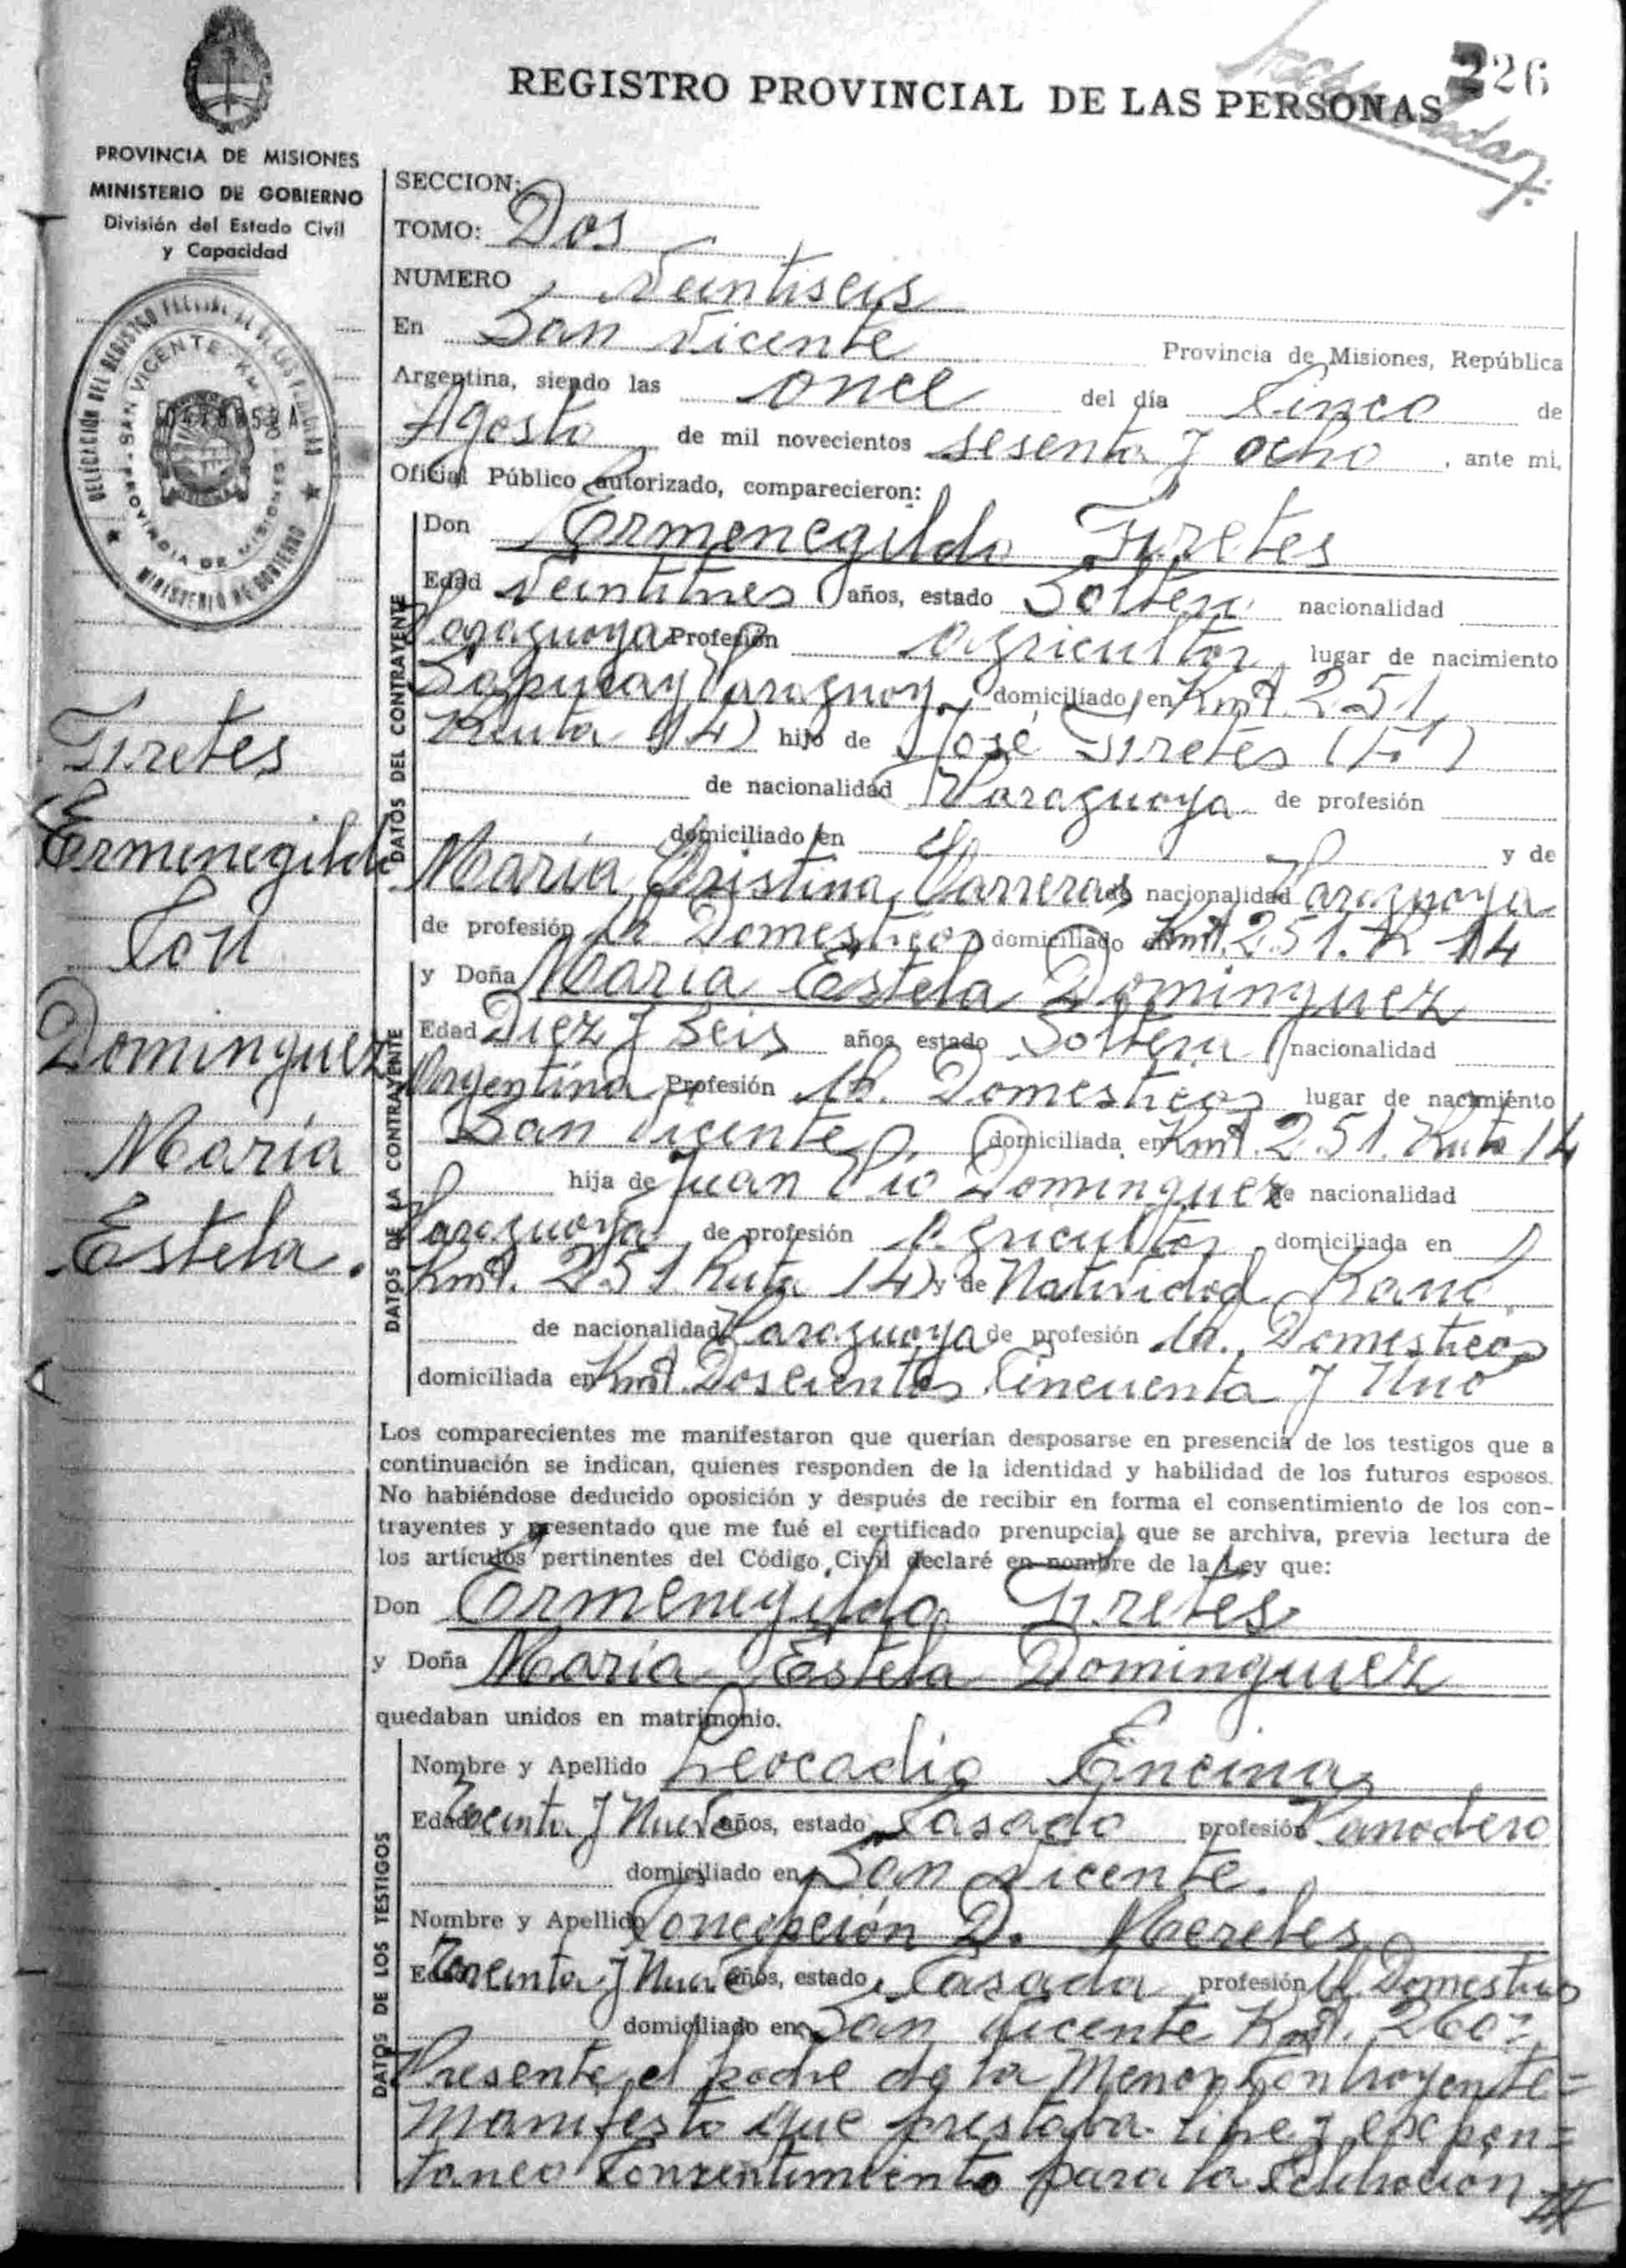 226
REGISTRO PROVINCIAL DE LAS PERSONAS
PROVINCIA DE MISIONES
MINISTERIO DE GOBIERNO
División del Estado Civil
y Capacidad
SECCION:
TOMO: Dos
NUMERO Veintiseis
En San Vicente Provincia de Misiones, República
Argentina, siendo las once del día Cinco de
Agosto de mil novecientos sesenta y ocho, ante mi,
Oficial Público autorizado, comparecieron:
DATOS DEL CONTRAYENTE
Don Ermenegildo Firetes
Edad Veintitres años, estado Soltero nacionalidad
Paraguaya Profesión agricultor lugar de nacimiento
Sapucay Paraguay domiciliado en Kmt. 251
Ruta 14 hijo de José Firetes (F)
de nacionalidad Paraguaya de profesión
domiciliado en y de
María Cristina Carreras nacionalidad Paraguaya
de profesión Q. Domesticos domiciliado Kmt. 251. R 14
DATOS DE LA CONTRAYENTE
y Doña María Estela Dominguez
Edad Diez y Seis años, estado Soltera nacionalidad
Argentina Profesión Q. Domesticos lugar de nacimiento
San Vicente domiciliada en Kmt. 251. Ruta 14
hija de Juan Pío Dominguez de nacionalidad
Paraguaya de profesión agricultor domiciliada en
Kmt. 251 Ruta 14 y de Natividad
de nacionalidad Paraguaya de profesión Q. Domesticos
domiciliada en Kmt. Doscientos Cincuenta y Uno
Los comparecientes me manifestaron que querían desposarse en presencia de los testigos que a
continuación se indican, quienes responden de la identidad y habilidad de los futuros esposos.
No habiéndose deducido oposición y después de recibir en forma el consentimiento de los con-
trayentes y presentado que me fué el certificado prenupcial que se archiva, previa lectura de
los artículos pertinentes del Código Civil declaré en nombre de la Ley que:
Don Ermenegildo Firetes
y Doña María Estela Dominguez
quedaban unidos en matrimonio.
DATOS DE LOS TESTIGOS
Nombre y Apellido Leocadio Encina
Edad Treinta y Nueve años, estado Casado profesión Panadero
domiciliado en San Vicente.
Nombre y Apellido Concepción D. Mereles
Edad Treinta y Nueve años, estado Casada profesión Q. Domesticos
domiciliado en San Vicente Kmt. 260
Presente el padre de la Menor Contrayente=
manifesto que prestaba libre y expon=
taneo Consentimiento para la
Firetes
Ermenegildo
Con
Dominguez
María
Estela.